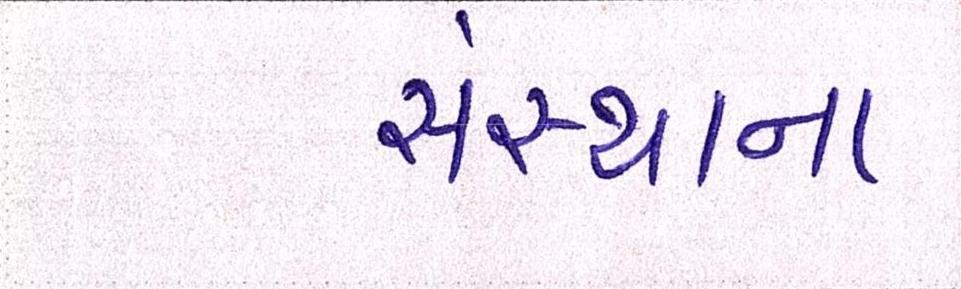 સંસ્થાના